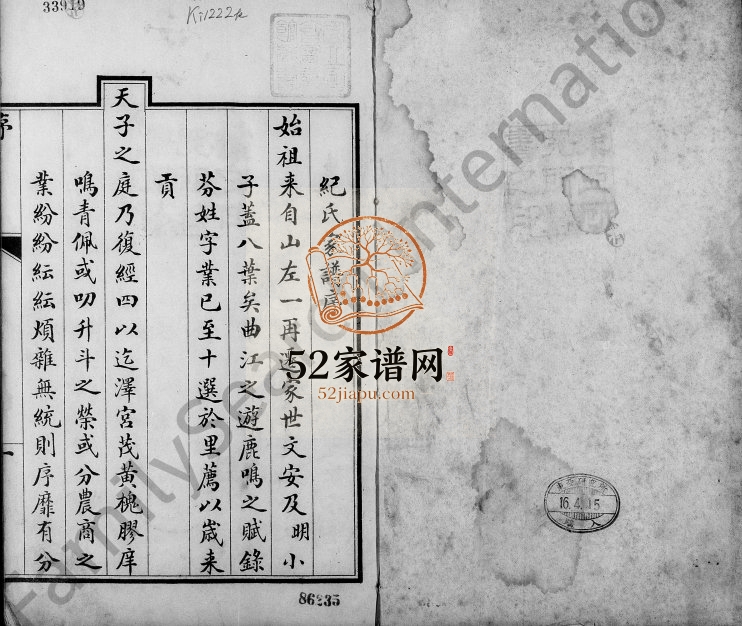 33919
Ki1222/2
紀氏家譜序
始祖来自山左一再遷家世文安及明小
子蓋八葉矣曲江之遊鹿鳴之賦錄
芬姓字業已至十選於里薦以歲来
貢
天子之庭乃復經四以迄澤宮茂黃槐膠庠
鳴青佩或叨升斗之榮或分農商之
業紛紛紜紜煩雜無統則序靡有分
序
一
52家谱网
52jiapu.com
FamilySearch International
16.4.15
86235